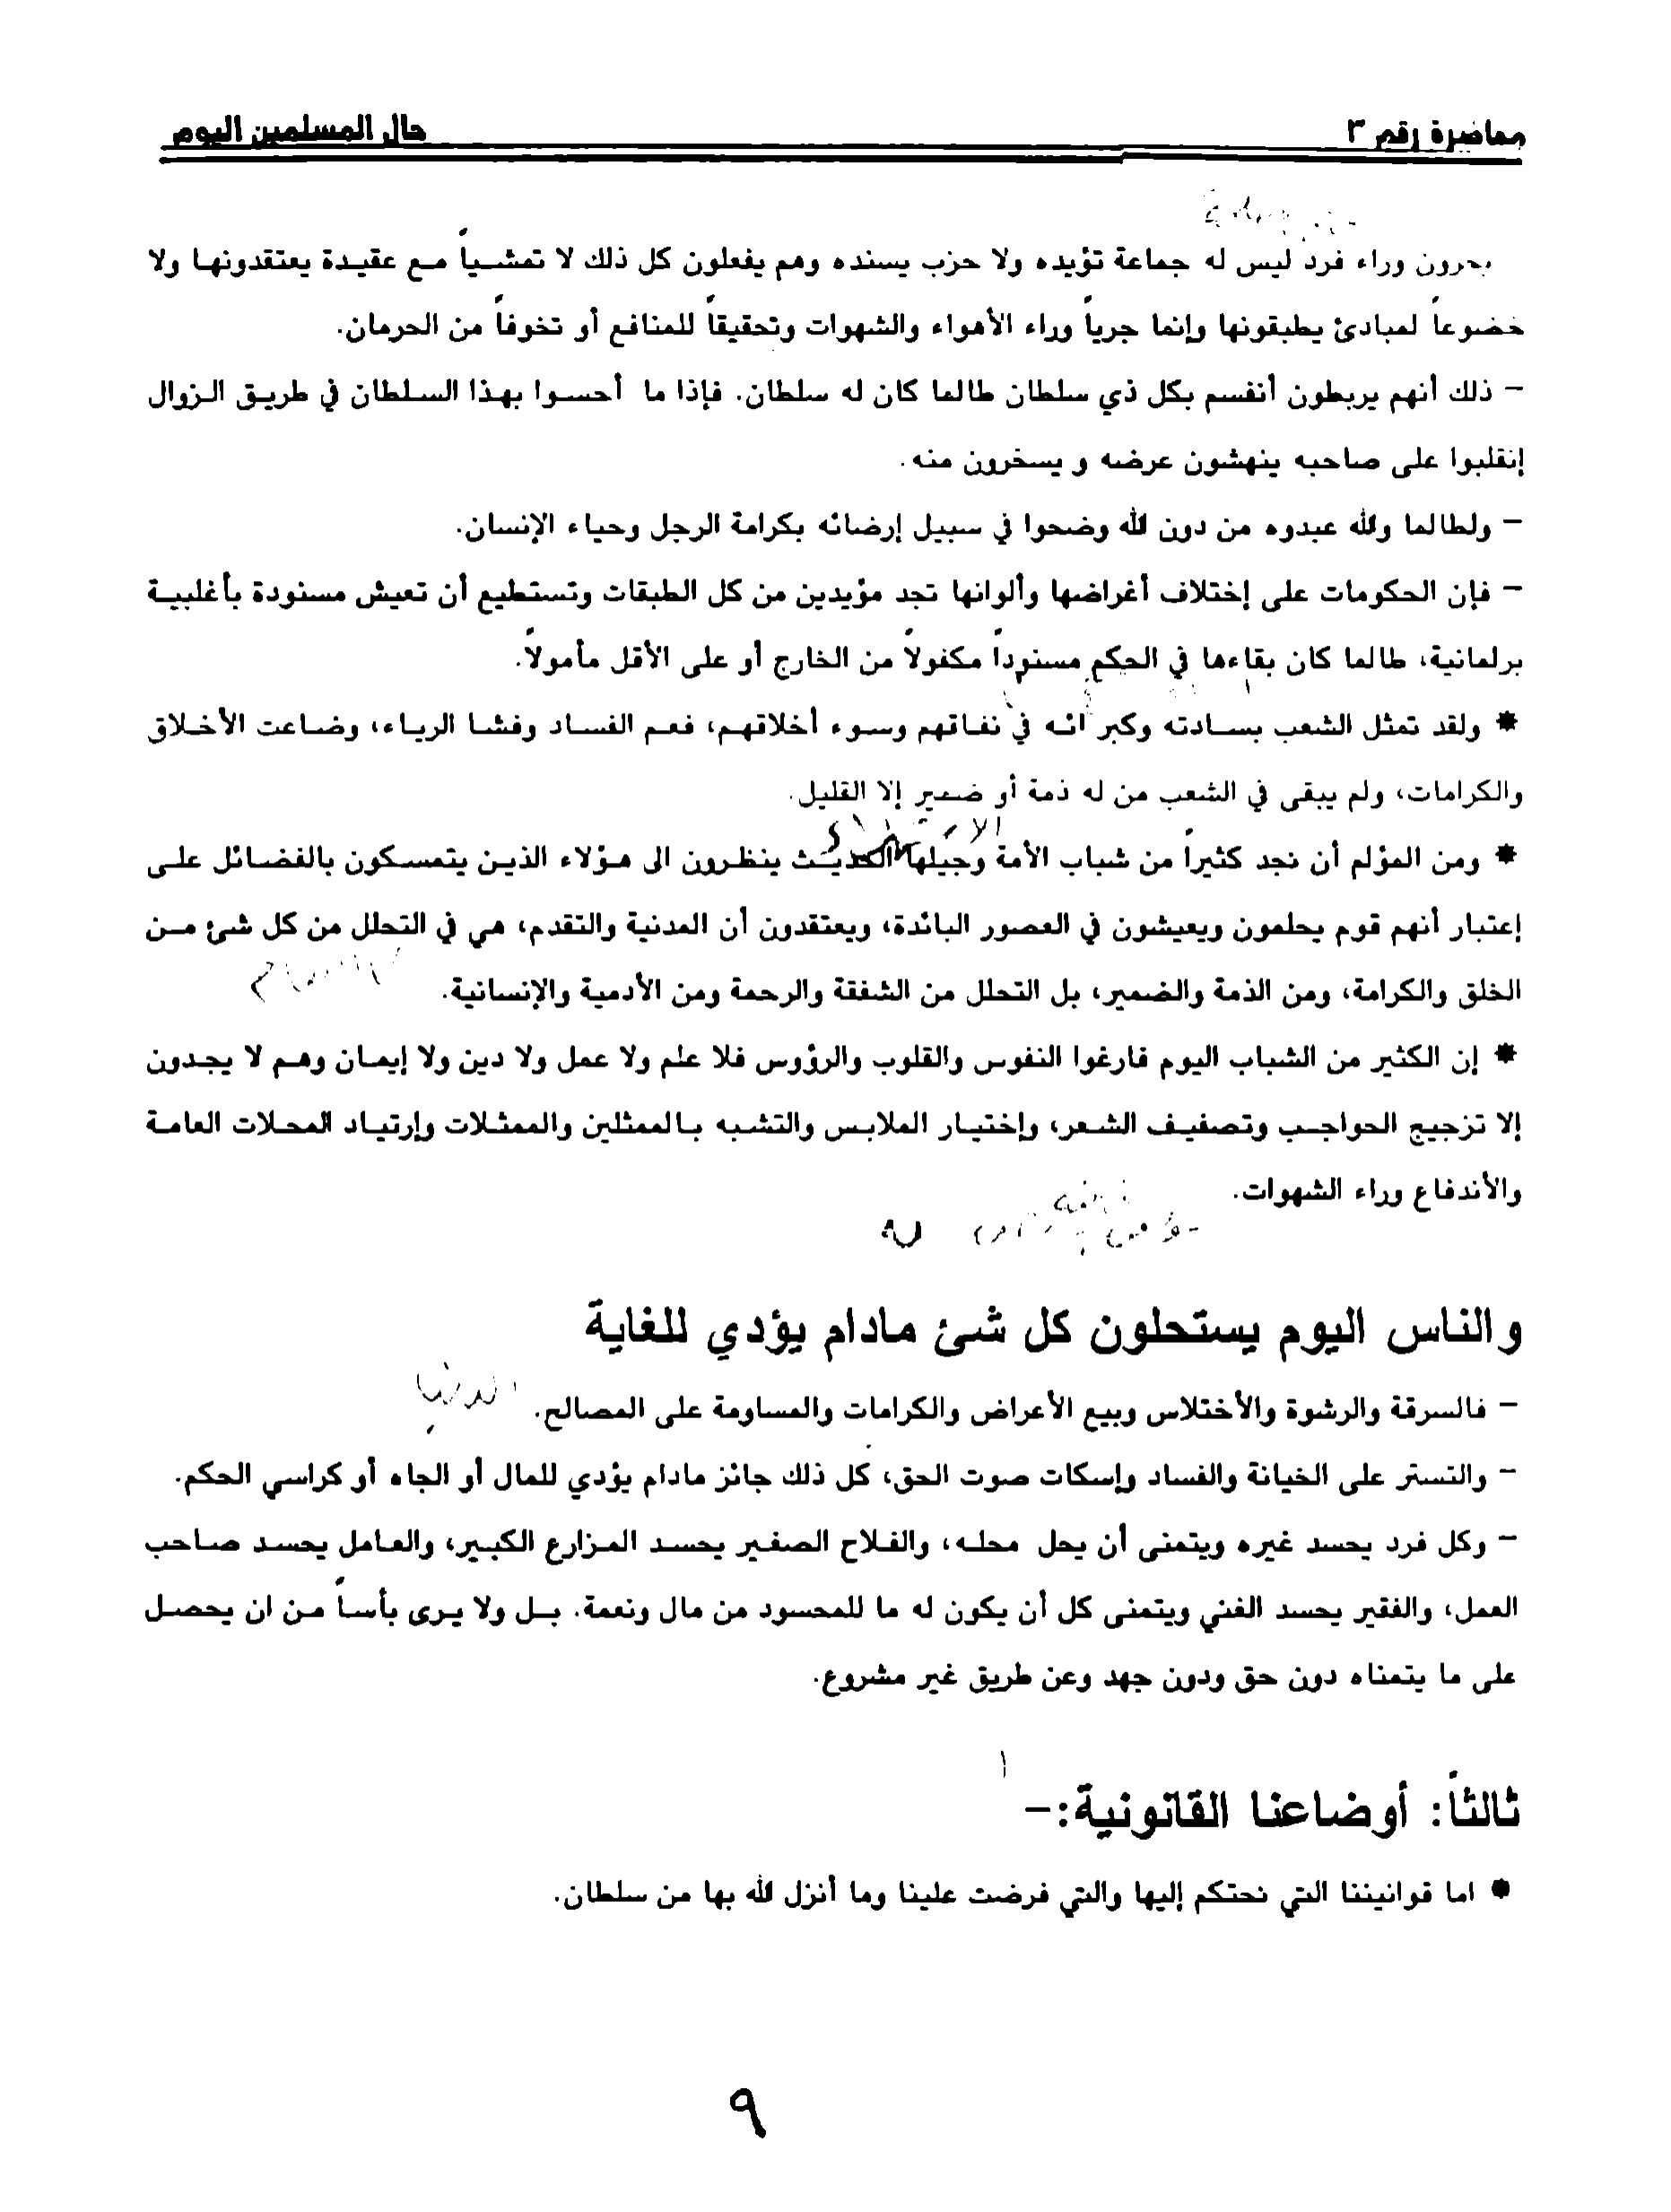 محاضرة رقم ٣
حال المسلمين اليوم
يجرون وراء فرد ليس له جماعة تؤيده ولا حزب يسنده وهم يفعلون كل ذلك لا تمشياً مع عقيدة يعتقدونها ولا
خضوعاً لمبادئ يطبقونها وإنما جرياً وراء الأهواء والشهوات وتحقيقاً للمنافع أو تخوفاً من الحرمان.
– ذلك أنهم يربطون أنفسم بكل ذي سلطان طالما كان له سلطان. فإذا ما أحسوا بهذا السلطان في طريق الزوال
إنقلبوا على صاحبه ينهشون عرضه و يسخرون منه.
– ولطالما ولله عبدوه من دون لله وضحوا في سبيل إرضائه بكرامة الرجل وحياء الإنسان.
– فإن الحكومات على إختلاف أغراضها وألوانها تجد مؤيدين من كل الطبقات وتستطيع أن تعيش مسنودة بأغلبية
برلمانية، طالما كان بقاءها في الحكم مسنوداً مكفولاً من الخارج أو على الأقل مأمولاً.
* ولقد تمثل الشعب بسادته وكبرائه في نفاقهم وسوء أخلاقهم، فعم الفساد وفشا الرياء، وضاعت الأخلاق
والكرامات، ولم يبقى في الشعب من له ذمة أو ضمير إلا القليل.
* ومن المؤلم أن نجد كثيراً من شباب الأمة وجيلها الحديث ينظرون الى هؤلاء الذين يتمسكون بالفضائل على
إعتبار أنهم قوم يحلمون ويعيشون في العصور البائدة، ويعتقدون أن المدنية والتقدم، هي في التحلل من كل شئ من
الخلق والكرامة، ومن الذمة والضمير، بل التحلل من الشفقة والرحمة ومن الأدمية والإنسانية.
* إن الكثير من الشباب اليوم فارغوا النفوس والقلوب والرؤوس فلا علم ولا عمل ولا دين ولا إيمان وهم لا يجدون
إلا تزجيج الحواجب وتصفيف الشعر، وإختيار الملابس والتشبه بالممثلين والممثلات وإرتياد المحلات العامة
والأندفاع وراء الشهوات.
والناس اليوم يستحلون كل شئ مادام يؤدي للغاية
الدنيا
– فالسرقة والرشوة والأختلاس وبيع الأعراض والكرامات والمساومة على المصالح.
– والتستر على الخيانة والفساد وإسكات صوت الحق، كل ذلك جائز مادام يؤدي للمال أو الجاه أو كراسي الحكم.
– وكل فرد يحسد غيره ويتمنى أن يحل محله، والفلاح الصغير يحسد المزارع الكبير، والعامل يحسد صاحب
العمل، والفقير يحسد الغني ويتمنى كل أن يكون له ما للمحسود من مال ونعمة. بل ولا يرى بأساً من ان يحصل
على ما يتمناه دون حق ودون جهد وعن طريق غير مشروع.
ثالثاً: أوضاعنا القانونية:–
* اما قوانيننا التي نحتكم إليها والتي فرضت علينا وما أنزل لله بها من سلطان.
٩